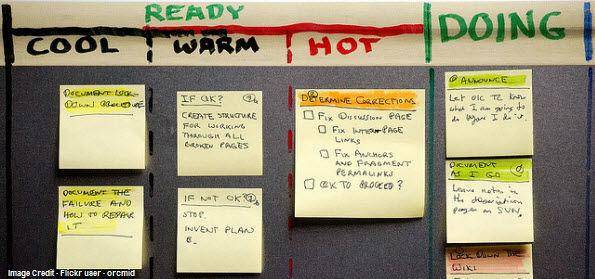 READY
COOL
WARM
HOT
DOING
DOCUMENT LOCK
DOWN PROCEDURE
DOCUMENT THE
FAILURE AND
HOW TO REPAIR
IT
IF OK?
CREATE STRUCTURE
FOR WORKING
THROUGH ALL
BROKEN PAGES
IF NOT OK?
STOP
INVENT PLAN
B.
DETERMINE CORRECTIONS
FIX DISCUSSION PAGE
FIX INTER-PAGE
LINKS
FIX ANCHORS
AND FRAGMENT
PERMALINKS
OK TO PROCEED?
ANNOUNCE
Let OIC TZ know
what I am going to
do when I do it.
DOCUMENT
AS I GO
Leave notes in
the description
pages on SVN
LOCK DOWN THE
WIKI
Image Credit - Flickr user - orcmid